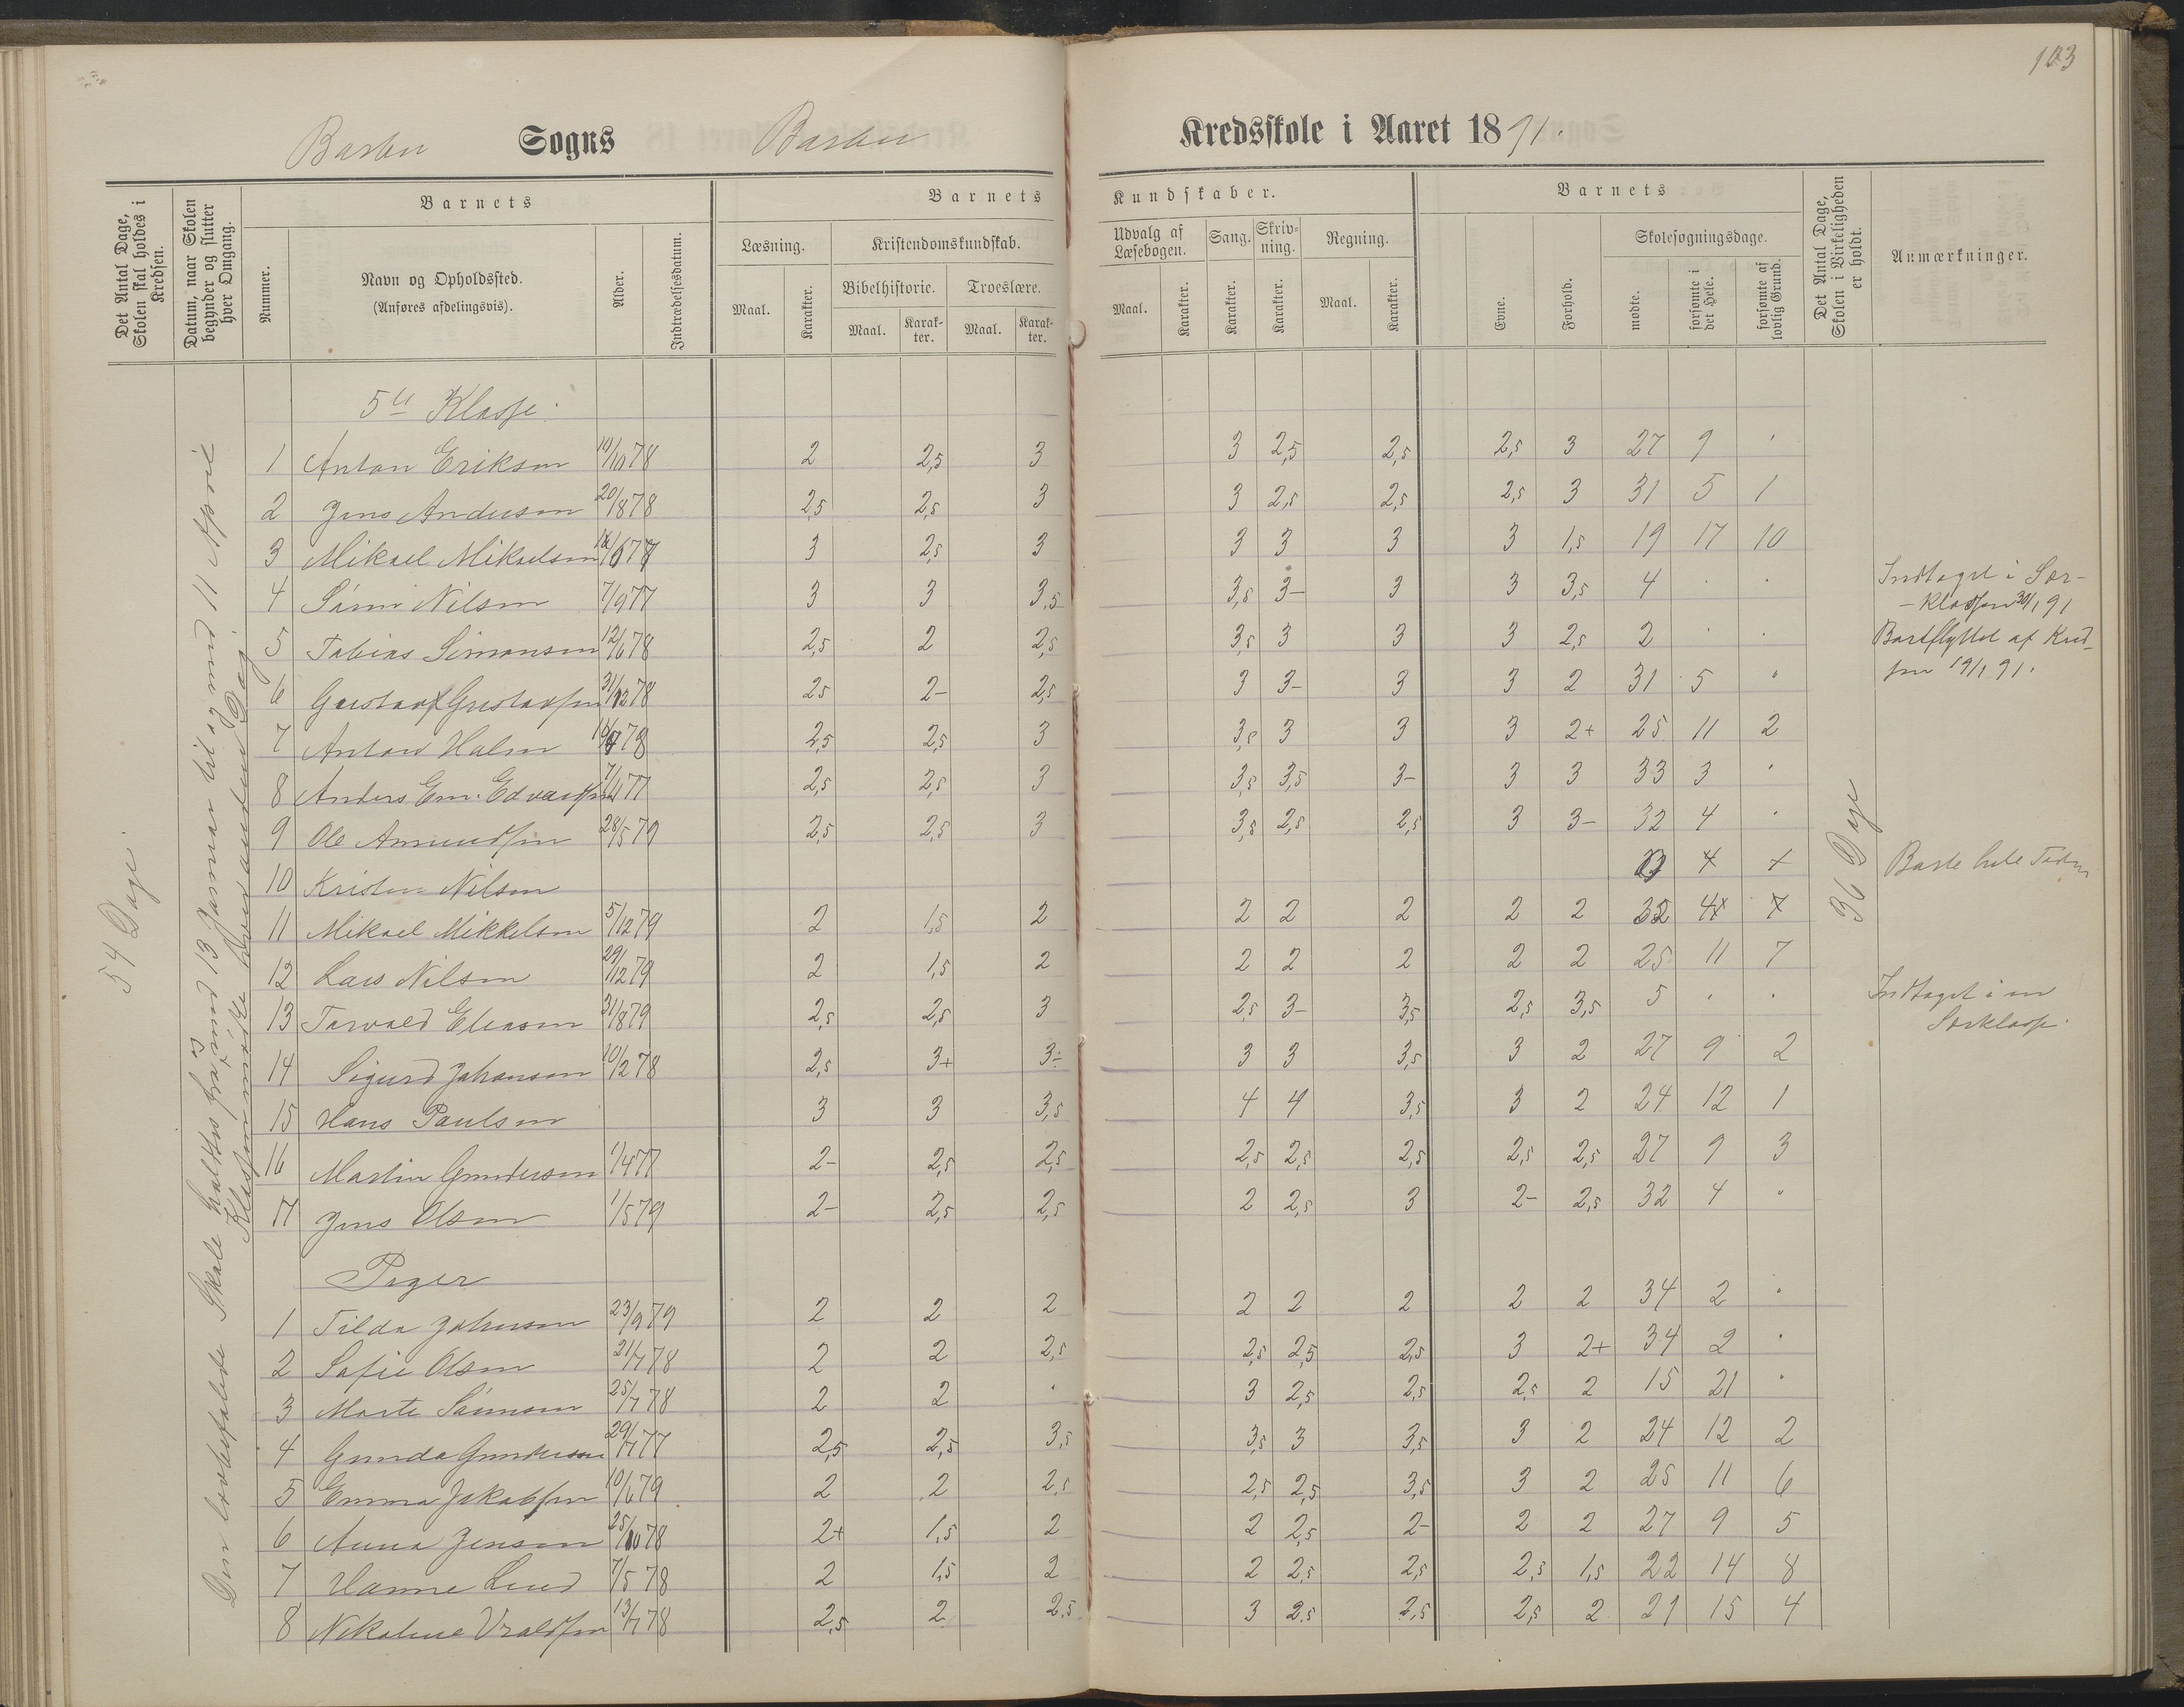 103
Barbu Sogns Barbu Kredsskole i Aaret 1891.
Det Antal Dage, Skolen skal holdes i Kredsen.
Datum, naar Skolen begynder og slutter hver Omgang.
Barnets
Nummer.
Navn og Opholdssted.
(Anføres afdelingsvis).
Alder.
Indtrædelsesdatum.
Barnets Kundskaber.
Læsning.
Maal. Karakter.
Kristendomskundskab.
Bibelhistorie. Troeslære.
Maal. Karakter. Maal. Karakter.
Udvalg af Læsebogen.
Maal. Karakter.
Sang.
Karakter.
Skrivning.
Karakter.
Regning.
Maal. Karakter.
Barnets
Evne.
Forhold.
Skolesøgningsdage.
mødte.
forsømte i det Hele.
forsømte af lovlig Grund.
Det Antal Dage, Skolen i Virkeligheden er holdt.
Anmærkninger.
54 Dage.
Den lovbefalede Skole holdtes fra 13 Januar til og med 11 April
Klassen mødte hver anden Dag.
36 Dage
5te Klasse.
1 Anton Erikson 10/10 78 2 2,5 3 3 2,5 2,5 2,5 3 27 9 .
2 Jens Anderson 20/8 78 2,5 2,5 3 3 2,5 2,5 2,5 3 31 5 1
3 Mikael Mikaelson 3 2,5 3 3 3 3 3 1,5 19 17 10
4 Nilsen 7/9 77 3 3 3,5 3,5 3- 3 3 3,5 4 . . Indtaget i Sær-
-klassen 30/1 91
5 Tobias Simonsen 12/6 78 2,5 2 2,5 3,5 3 3 3 2,5 2 . . Bortflyttet af Kred-
sen 19/1 91.
6 Gustav Gustavsen 31/12 78 2,5 2- 2,5 3 3- 3 3 2 31 5 .
7 Anton Holm 78 2,5 2,5 3 3,5 3 3 3 2+ 25 11 2
8 Anders Em. Edvardsen 77 2,5 2,5 3 3,5 3,5 3- 3 3 33 3 .
9 Ole Amundsen 28/5 79 2,5 2,5 3 3,5 2,5 2,5 3 3- 32 4 .
10 Kristen Nilsen Borte hele Tiden
11 Mikael Mikkelsen 5/12 79 2 1,5 2 2 2 2 2 2 32 4
12 Lars Nilsen 29/12 79 2 1,5 2 2 2 2 2 2 25 11 7
13 Torvald Eliasen 31/8 79 2,5 2,5 3 2,5 3- 3,5 2,5 3,5 5 . . Indtaget i en
Særklasse.
14 Sigurd Johansen 10/2 78 2,5 3+ 3÷ 3 3 3,5 3 2 27 9 2
15 Hans Paulsen 3 3 3,5 4 4 3,5 3 2 24 12 1
16 Martin Gunderson 1/4 77 2- 2,5 2,5 2,5 2,5 2,5 2,5 2,5 27 9 3
17 Jens Olsen 1/5 79 2- 2,5 2,5 2 2,5 3 2- 2,5 32 4 .
Piger
1 Tilda Johnsen 23/9 79 2 2 2 2 2 2 2 2 34 2 .
2 Sofie Olsen 21/7 78 2 2 2,5 2,5 2,5 2,5 3 2+ 34 2 .
3 Marte 25/7 78 2 2 . 3 2,5 2,5 2,5 2 15 21 .
4 Gunda Gundersen 29/7 77 2,5 2,5 3,5 3,5 3 3,5 3 2 24 12 2
5 Emma Jakobsen 10/6 79 2 2 2,5 2,5 2,5 3,5 3 2 25 11 6
6 Anna Jensen 25/10 78 2+ 1,5 2 2 2,5 2- 2 2 27 9 5
7 Hanne Lund 7/5 78 2 1,5 2 2 2,5 2,5 2,5 1,5 22 14 8
8 Nikoline Vraldsen 13/7 78 2,5 2 2,5 3 2,5 2,5 2,5 2 21 15 4